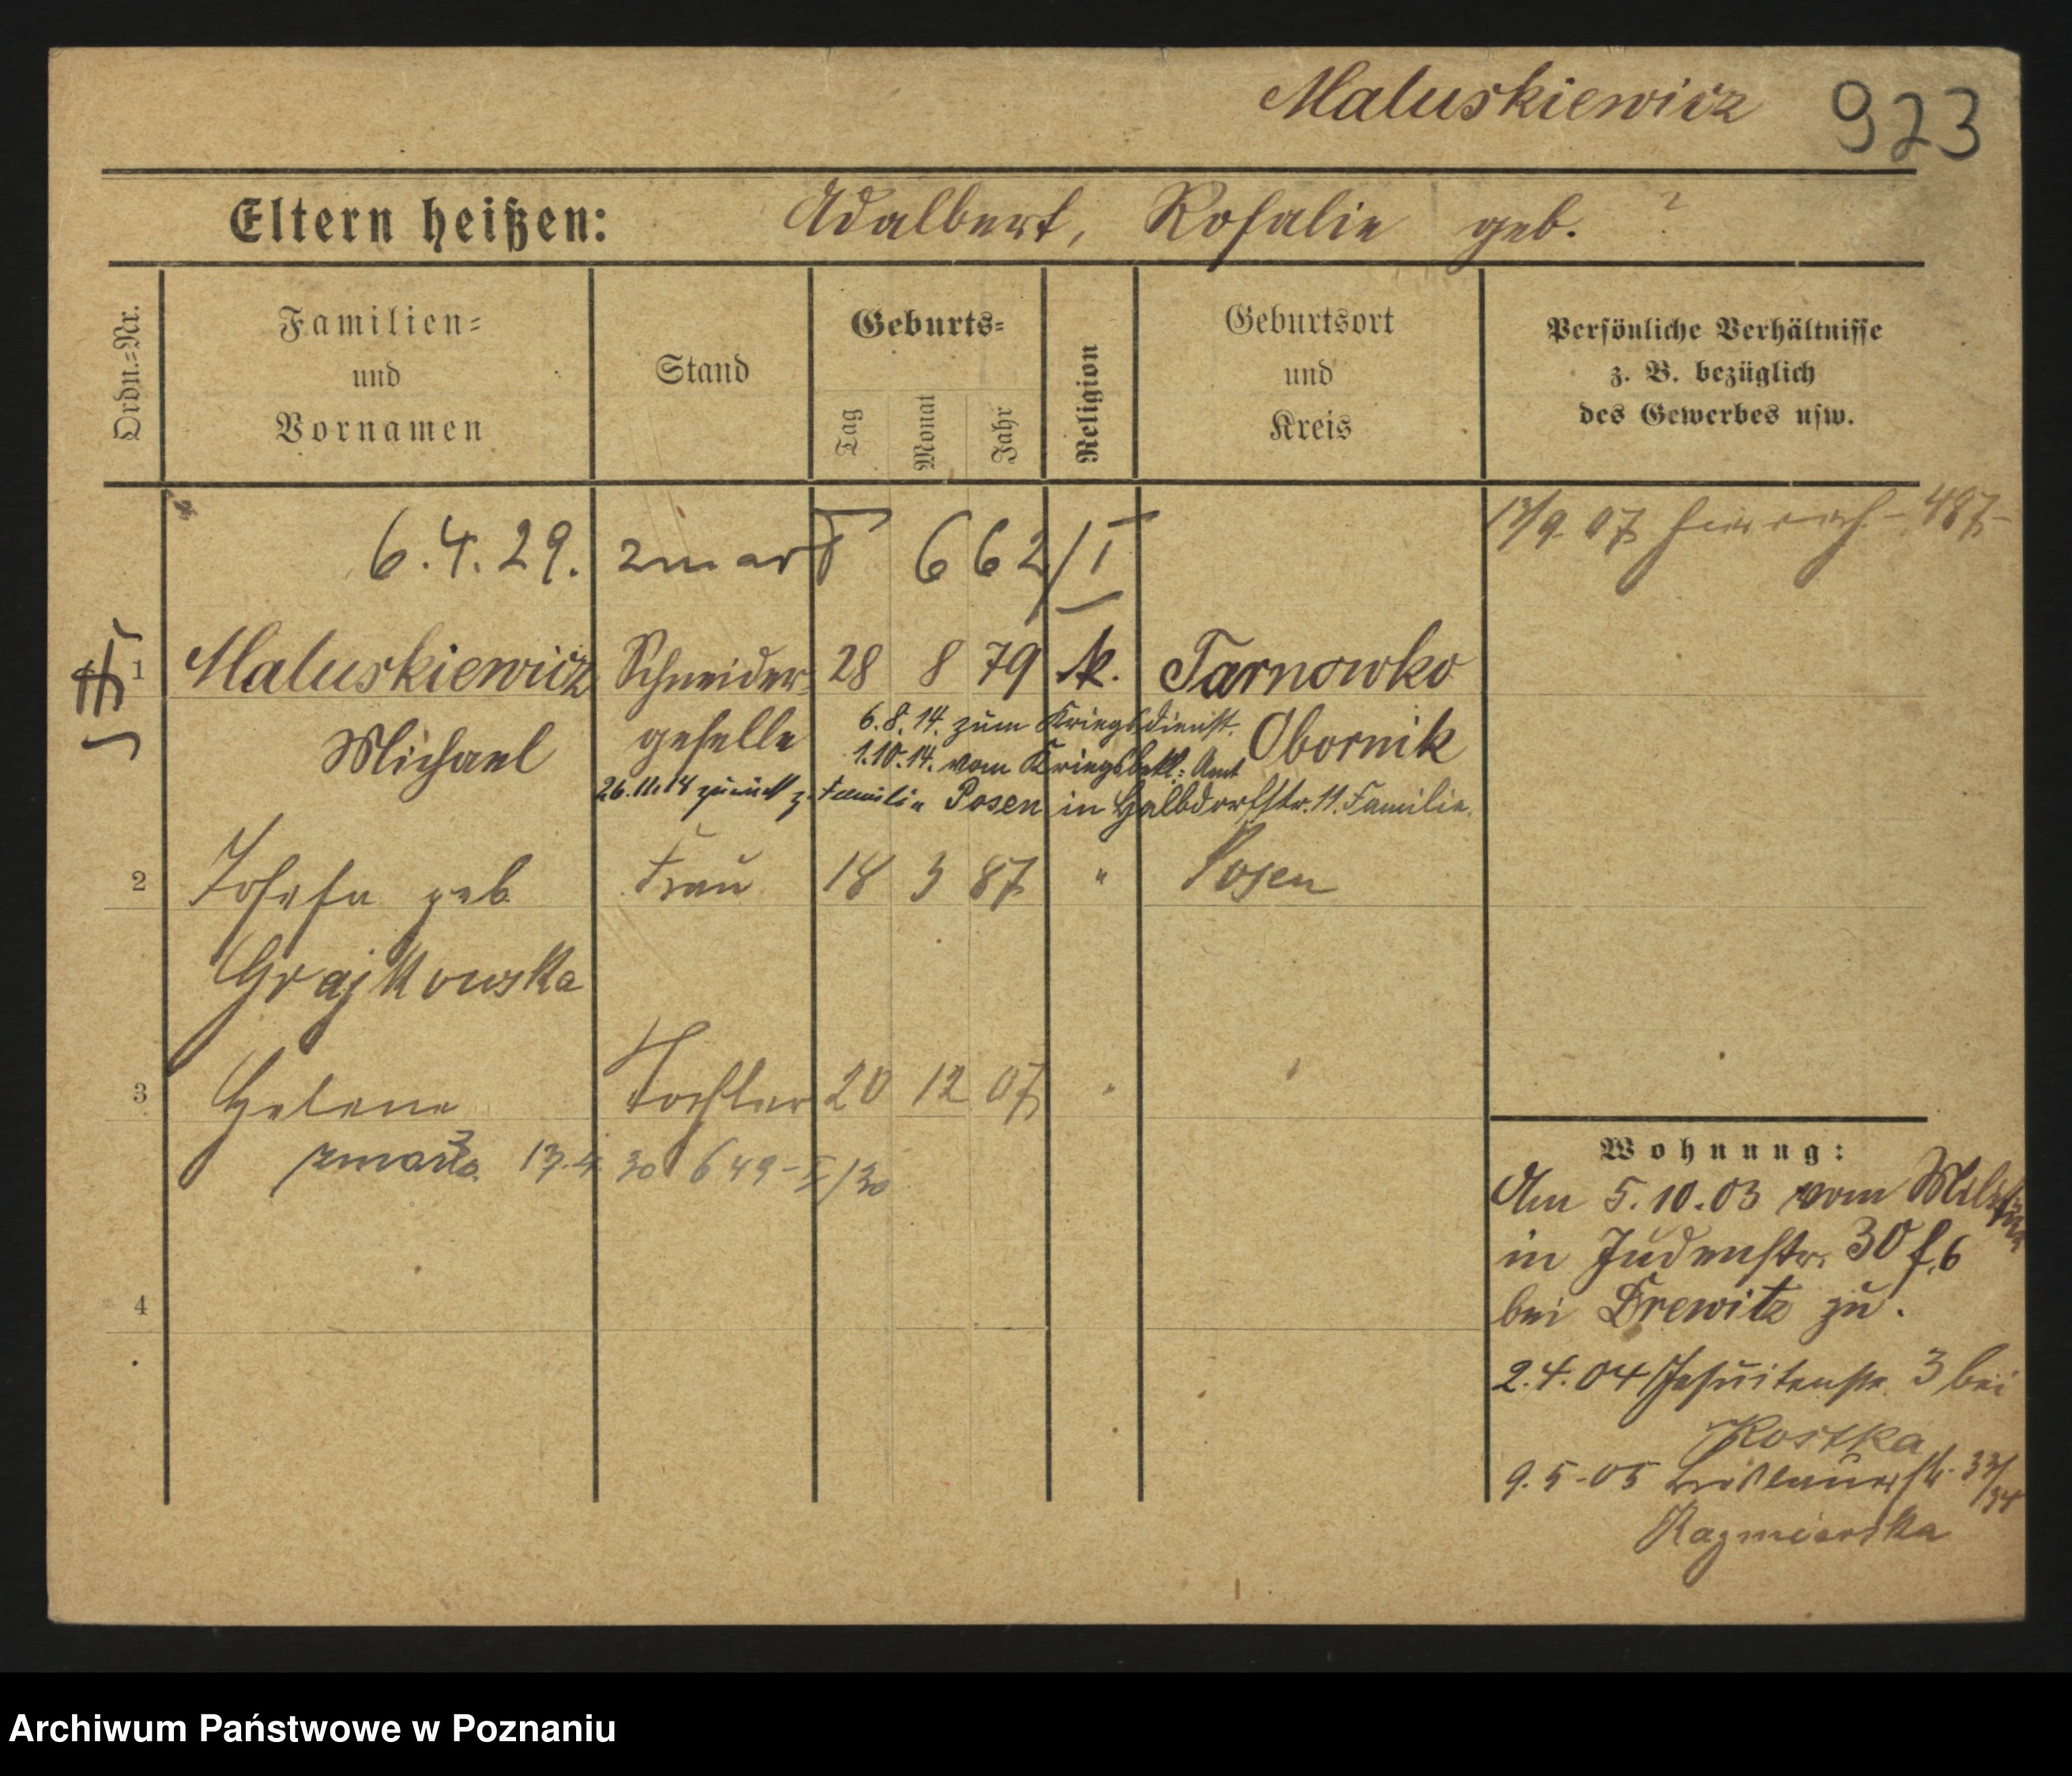 Maluskiewicz 923
Eltern heißen: Adalbert, Rosalie geb. ?
Ordn.=Nr.
Familien=
und
Vornamen
Stand
Geburts=
Tag
Monat
Jahr
Religion
Geburtsort
und
Kreis
Persönliche Verhältnisse
z. B. bezüglich
des Gewerbes usw.
6.4.29. zmarł 662/I
9. 07 487
1 Maluskiewicz Schneider= 28 8 79 k. Tarnowko
Michael geselle Obornik
6.8.14. zum Kriegsdienst.
1.10.14. vom Kriegsbekl.=Amt
26.11.14 zurück z. Familie Posen in Halbdorfstr. 11. Familie.
2 Josefa geb Frau 18 3 87 " Posen
Grajkowska
3 Helene Tochter 20 12 07 "
zmarła 13.4 30 649-I/30
4
Wohnung:
Am 5.10.03 vom Militär
in Judenstr. 30 f. 6
bei Drewitz zu.
2.4.04 Jesuitenstr. 3 bei
Kostka
9.5-05 33/34
Kazmierska
Archiwum Państwowe w Poznaniu